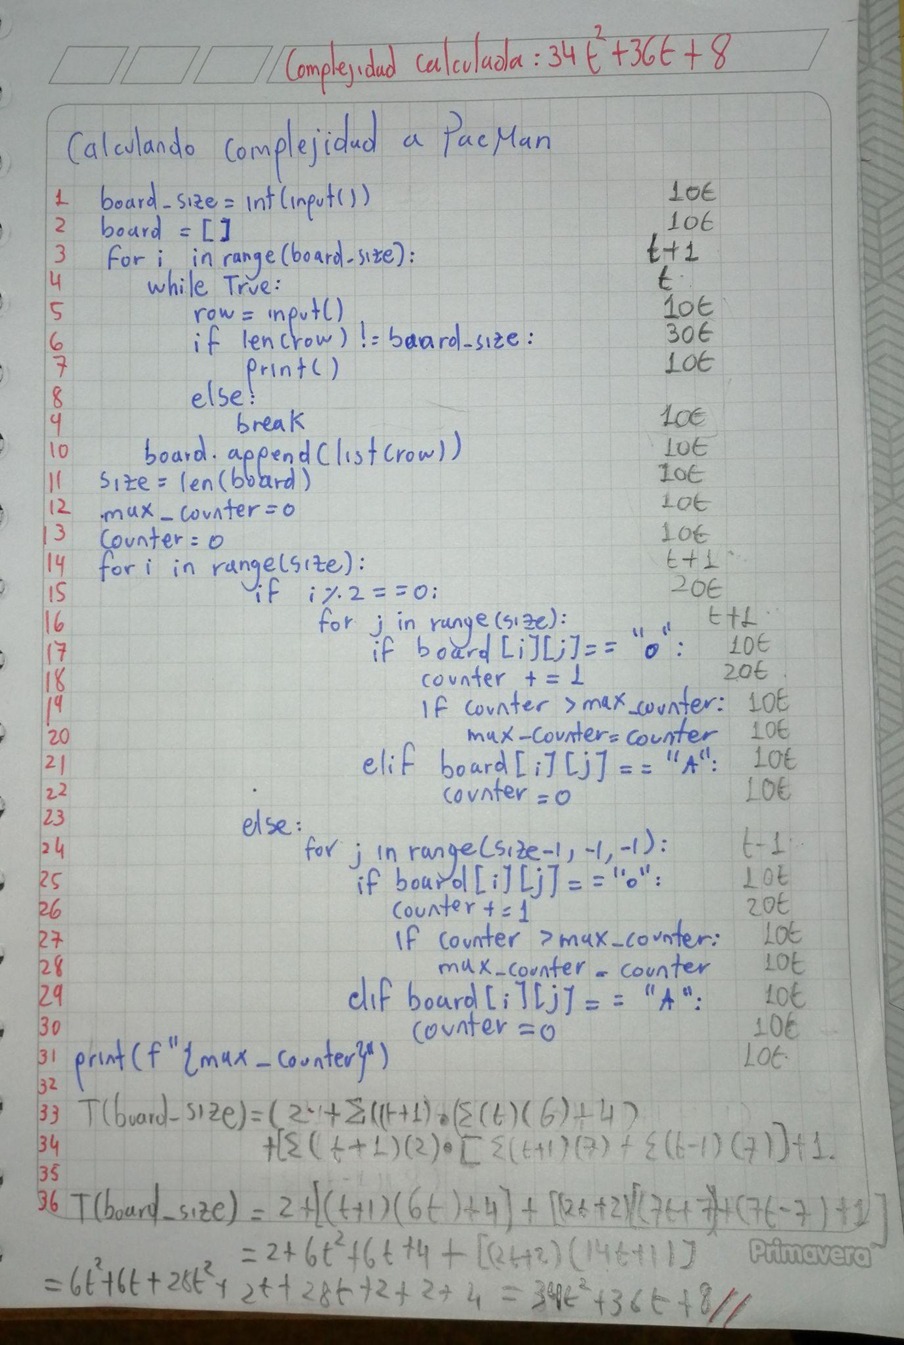 Complejidad calculada: 34t²+36t+8
Calculando complejidad a PacMan
1 board_size = int(input()) 10t
2 board = [] 10t
3 for i in range(board_size): t+1
4 while True: t
5 row = input() 10t
6 if len(row) != board_size: 30t
7 print() 10t
8 else:
9 break 10t
10 board.append(list(row)) 10t
11 size = len(board) 10t
12 max_counter=0 10t
13 counter=0 10t
14 for i in range(size): t+1
15 if i%2==0: 20t
16 for j in range(size): t+1
17 if board[i][j]== "o": 10t
18 counter += 1 20t
19 if counter >max_counter: 10t
20 max_counter=counter 10t
21 elif board[i][j] == "A": 10t
22 counter=0 10t
23 else:
24 for j in range(size-1,-1,-1): t-1
25 if board[i][j]=="o": 10t
26 counter+=1 20t
27 if counter >max_counter: 10t
28 max_counter = counter 10t
29 elif board[i][j] == "A": 10t
30 counter=0 10t
31 print(f"{max_counter}") 10t
32
33 T(board_size)=(2+Σ((t+1)•(Σ(t)(6)+4)
34 +[Σ(t+1)(2)•[Σ(t+1)(7)+Σ(t-1)(7)]+1.
35
36 T(board_size) = 2+[(t+1)(6t)+4]+[(2t+2)[(7t+7)+(7t-7)+1]
= 2+6t²+6t+4+[(2t+2)(14t+1)]
Primavera
= 6t²+6t+28t²+2t+28t+2+2+4 = 34t²+36t+8//